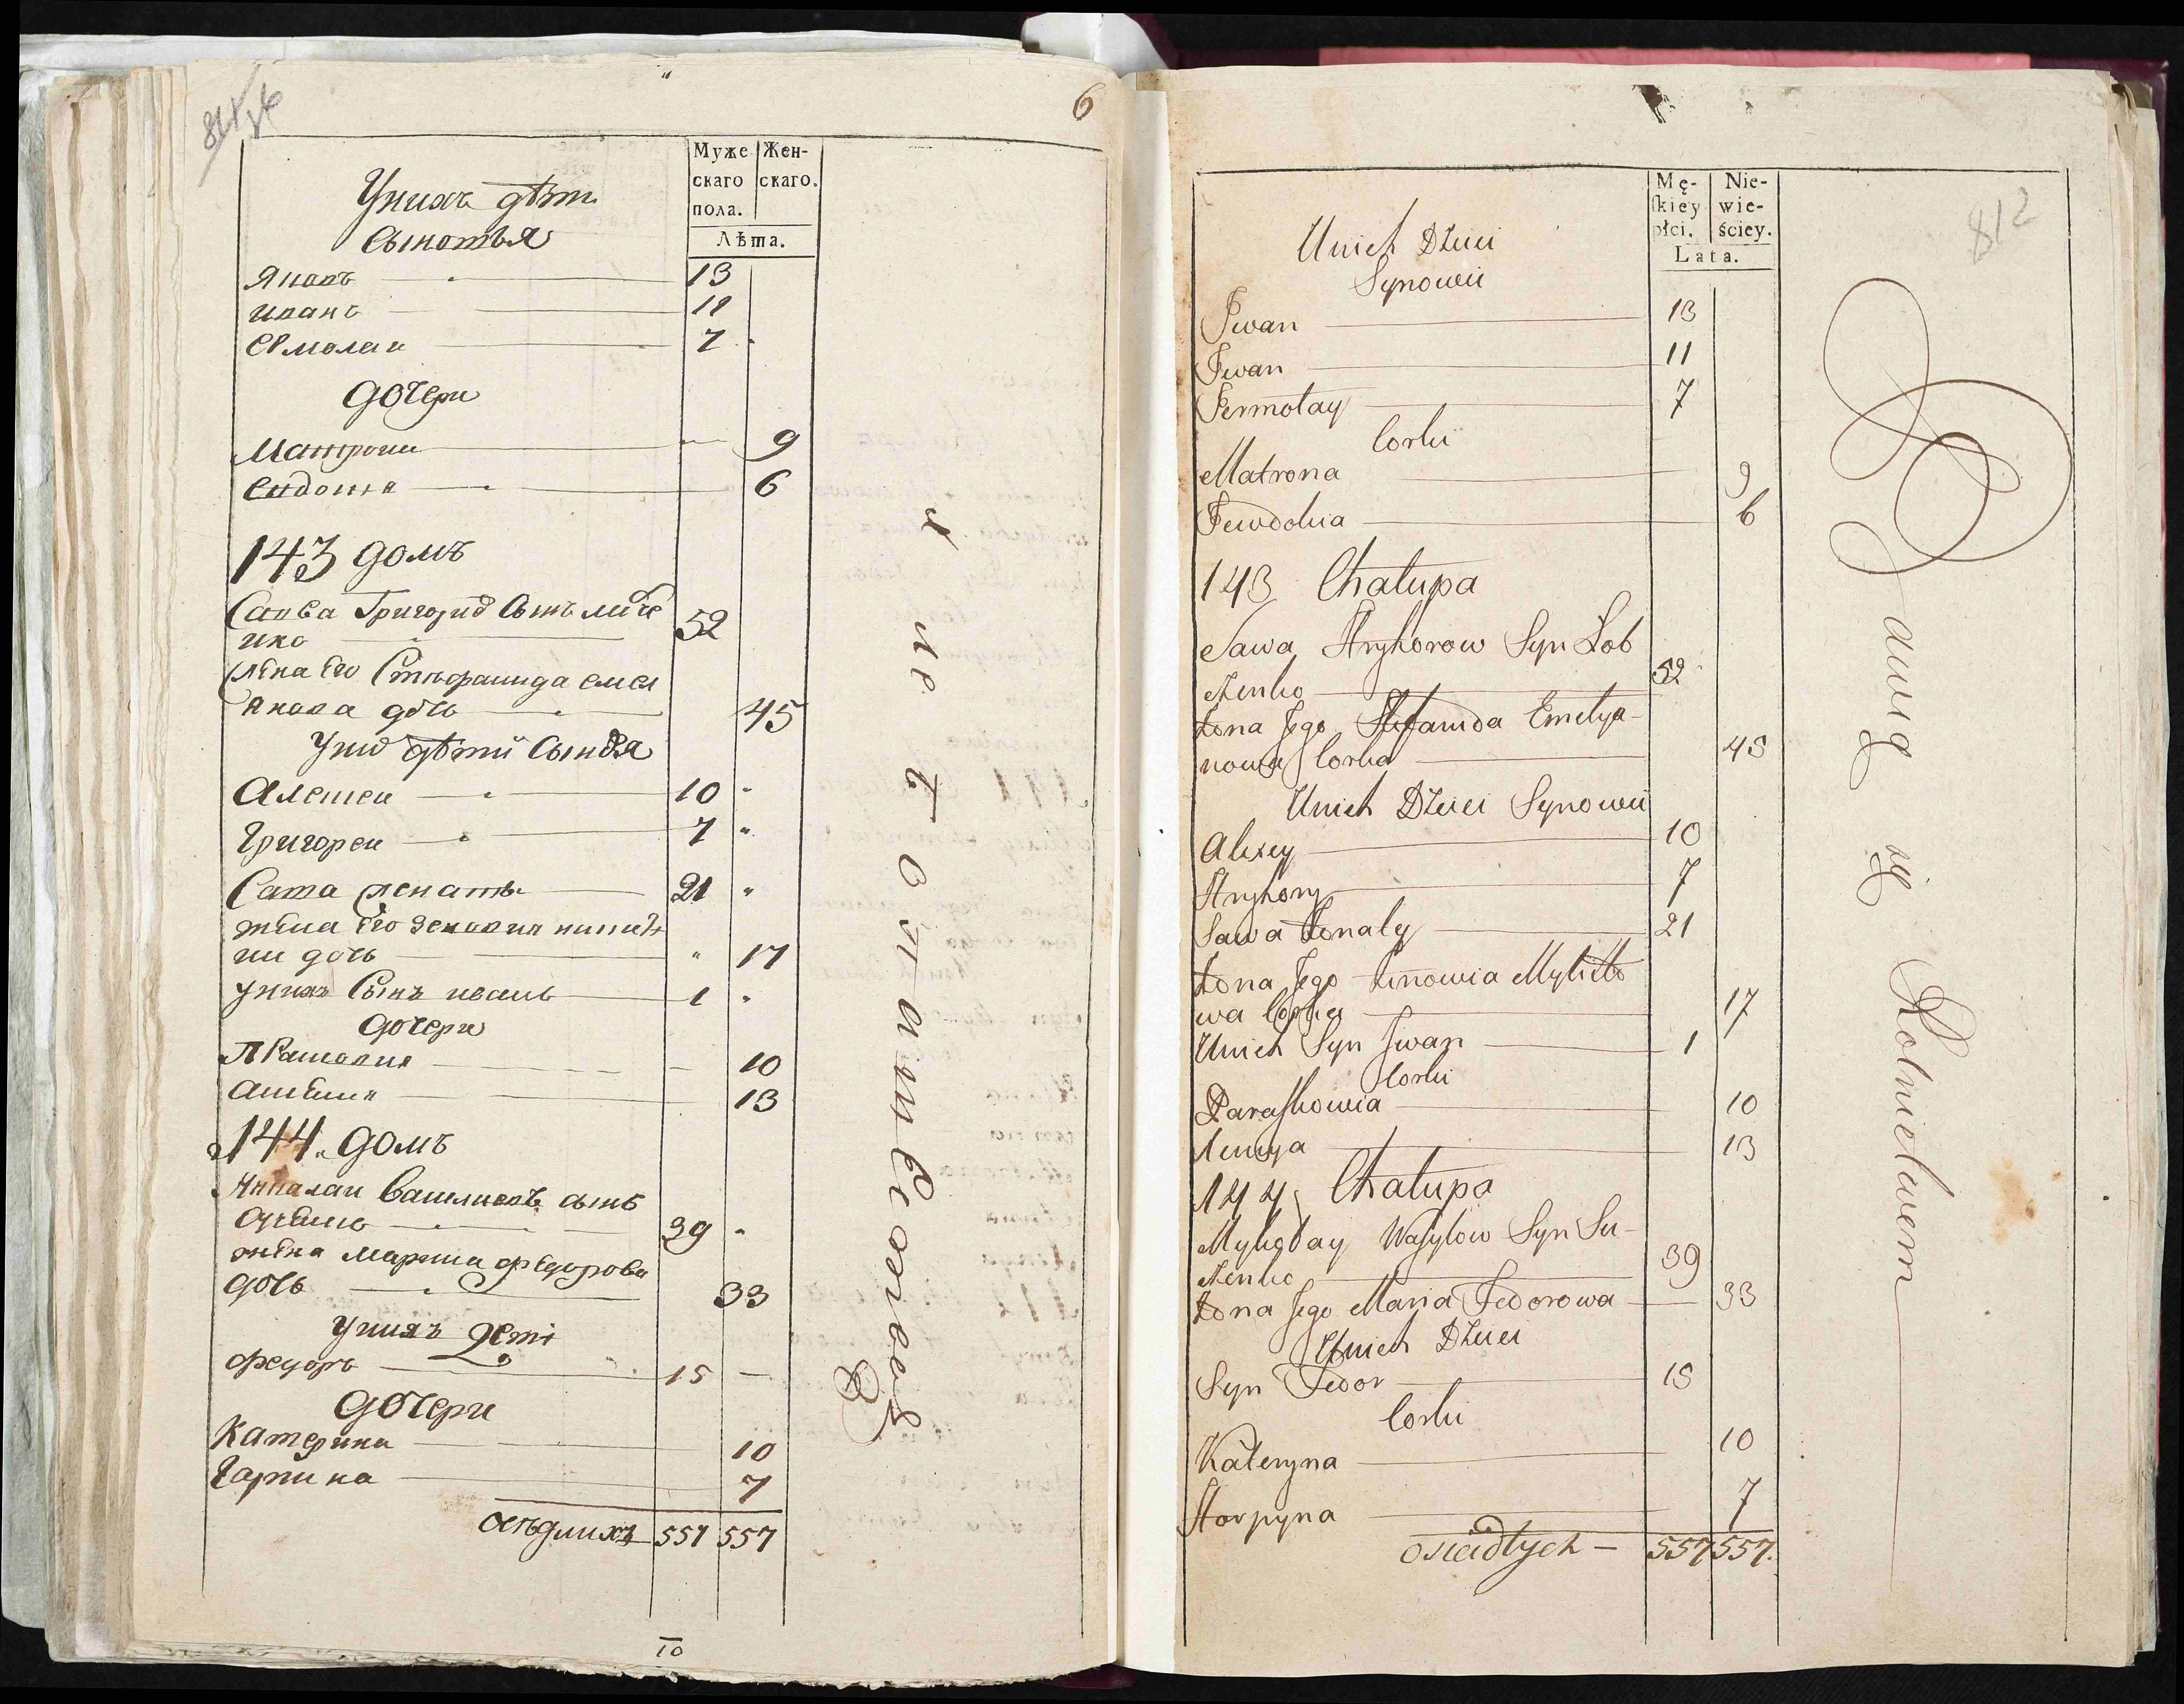 6
Муже
скаго
пола.
Жен-
скаго.
Лѣта.
Унихъ дѣти
Сыновья
Яковъ 13
иванъ 11
Ермолаи 7
дочери
Матрони 9
Евдокия 6
143 домъ
Савва Григорив Сынъ
52
жена Его Стефанида емел
янова дочь 45
Унихъ дѣти Сыновя
Алексеи 10
Григореи 7
Сава женатъ 21
жена Его зеновия никит
ни дочь 17
унихъ Сынъ иванъ 1
дочери
Парасковия 10
13
144 домъ
Николаи Василиевъ сынъ
39
жена Мариа федорова
дочь 33
унихъ Дети
федоръ 15
дочери
Катерина 10
Гарпина 7
осѣдлихъ 557 557
10
812
Mę-
skiey
płci.
Nie-
wie-
ściey.
Lata.
Unich Dzieci
Synowii
Iwan 13
Iwan 11
Jermołay 7
Corki
Matrona 9
Jewdokia 6
143 Chałupa
Sawa Hryhorow Syn Łob
czenko 52
żona Jego Stefanida Emelya-
nowa Corka 45
Unich Dzieci Synowii
Alexey 10
Hryhory 7
Sawa żonaty 21
żona Jego Zinowia Mykitto
wa Corka 17
Unich Syn Jwan 1
Corki
Paraskowia 10
13
144 Chałupa
Mykołay Wasylow Syn Su-
czenko 39
żona Jego Maria Fedorowa 33
Unich Dzieci
Syn Fedor 15
Corki
Kateryna 10
Horpyna 7
osiadłych 557 557.